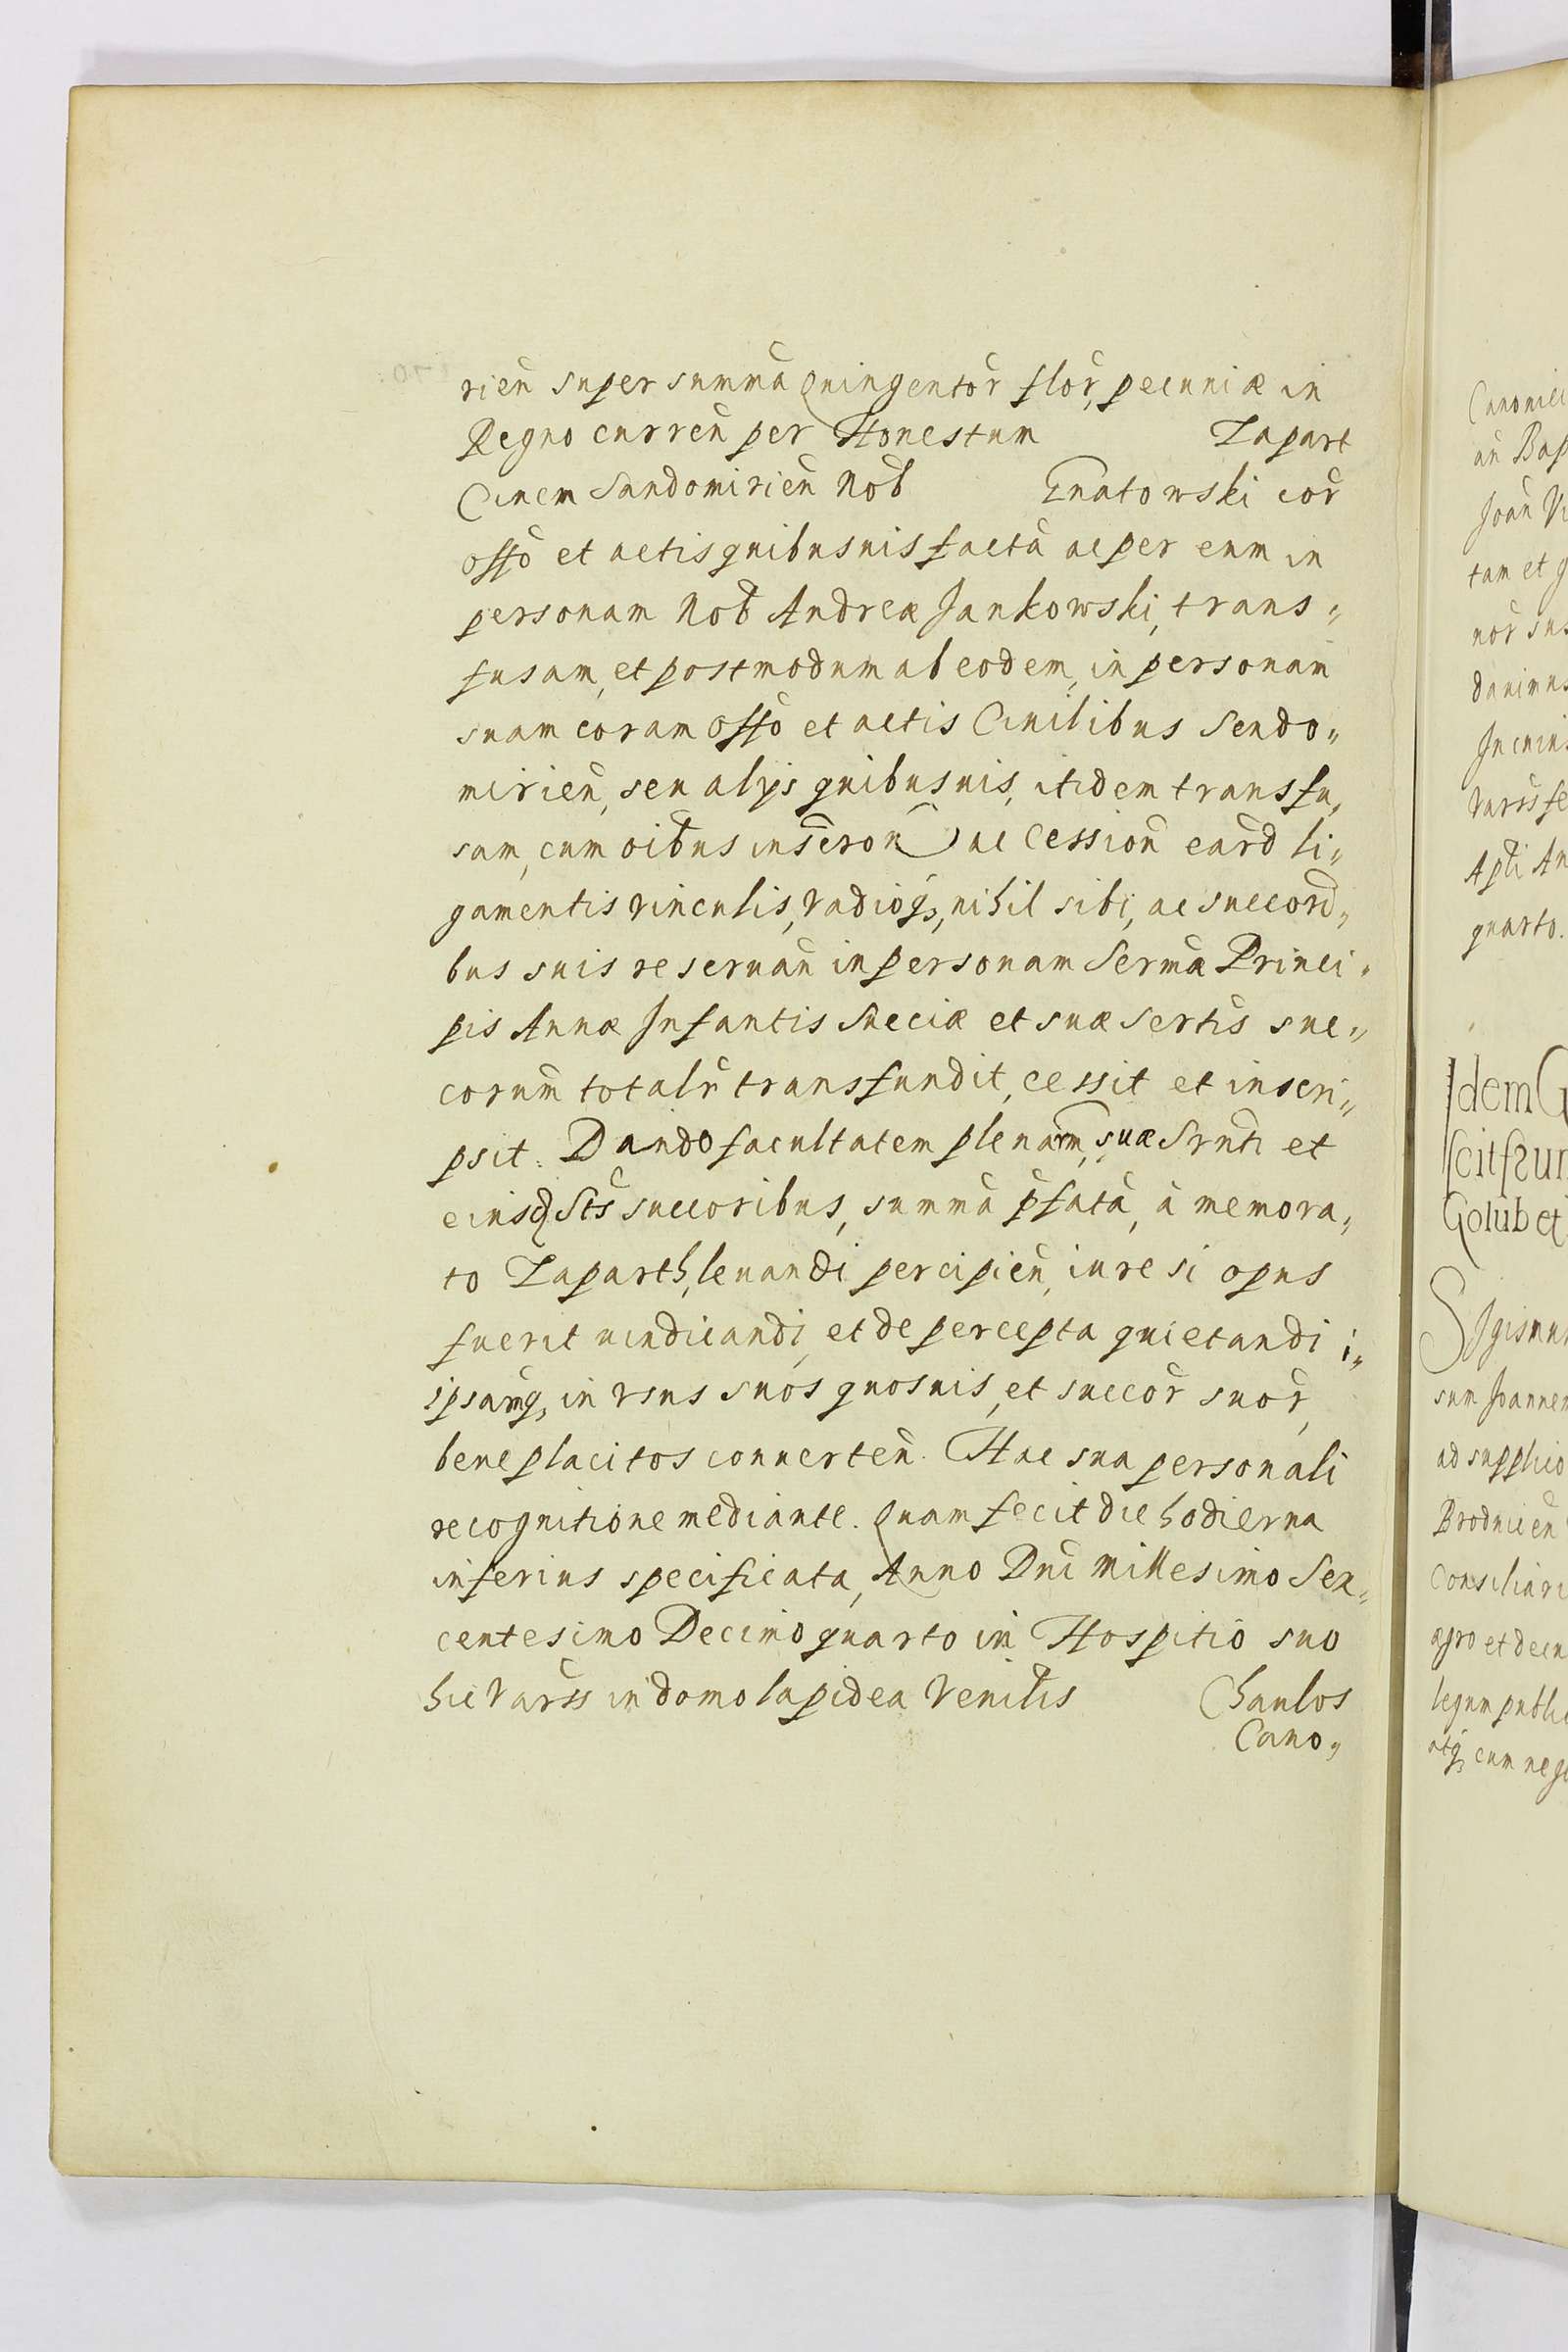 rien̄ super summā Quingentor̄ flor̄, pecuniæ in
Regno curren̄ per Honestum Zapart
Ciuem Sandomirien̄ Nob̄ Gnatowski cor̄
offō et actis quibusuis factā ac per eum in
personam Nob̄ Andreæ Jankowski, trans„
fusam, et postmodum ab eodem, in personam
suam coram offō et actis Ciuilibus Sendo„
mirien̄, seu alijs quibusuis, itidem transfu„
sam, cum oibus inscron̄ ac Cession̄ eard̄ li„
gamentis vinculis, vadioq₃, nihil sibi, ac succord̄„
bus suis reseruan̄ in personam Sermæ Princi„
pis Annæ Infantis Sueciæ et suæ Sertis suc„
corum totalr̄ transfundit, cessit et inscri„
psit. Dando facultatem plenam, suæ Srnti et
eiusd̄ Stis succoribus, summā p̄fatā, à memora„
to Zaparth, leuandi percipien̄, iure si opus
fuerit uindicandi, et de percepta quietandi i„
ipsamq₃, in vsus suos quosuis, et succor̄ suor̄,
beneplacitos conuerten̄. Hac sua personali
recognitione mediante. Quam fecit die hodierna
inferius specificata, Anno Dn̄i Millesimo Sex„
centesimo Decimo quarto in Hospitio suo
hic Varss in domo lapidea Ven̄lis Chaulos
Cano„
Canonici
an̄ Bap
Joan̄ Vi
tam et q
nor̄ sus
dauimus
In cuius
Varss fe
Apli An
quarto.
Idem G
scit sum
Golub et
Sigismun
sum Joannem
ad supplica
Brodnicen̄
Consiliari
agro et decn
legum public
atq₃ cum nego